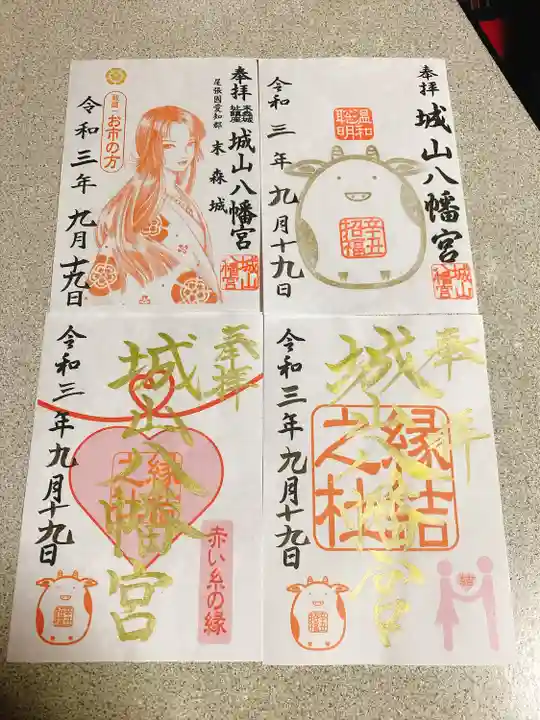 奉拝
末森城
址鎮座
城山八幡宮
尾張國愛知郡
末森城
お市の方
令和三年九月十九日
奉拝
城山八幡宮
温和
聡明
辛丑
招福
城山
八幡宮
令和三年九月十九日
奉拝
城山八幡宮
縁結
之杜
赤い糸の縁
令和三年九月十九日
奉拝
城山八幡宮
縁結
之杜
令和三年九月十九日